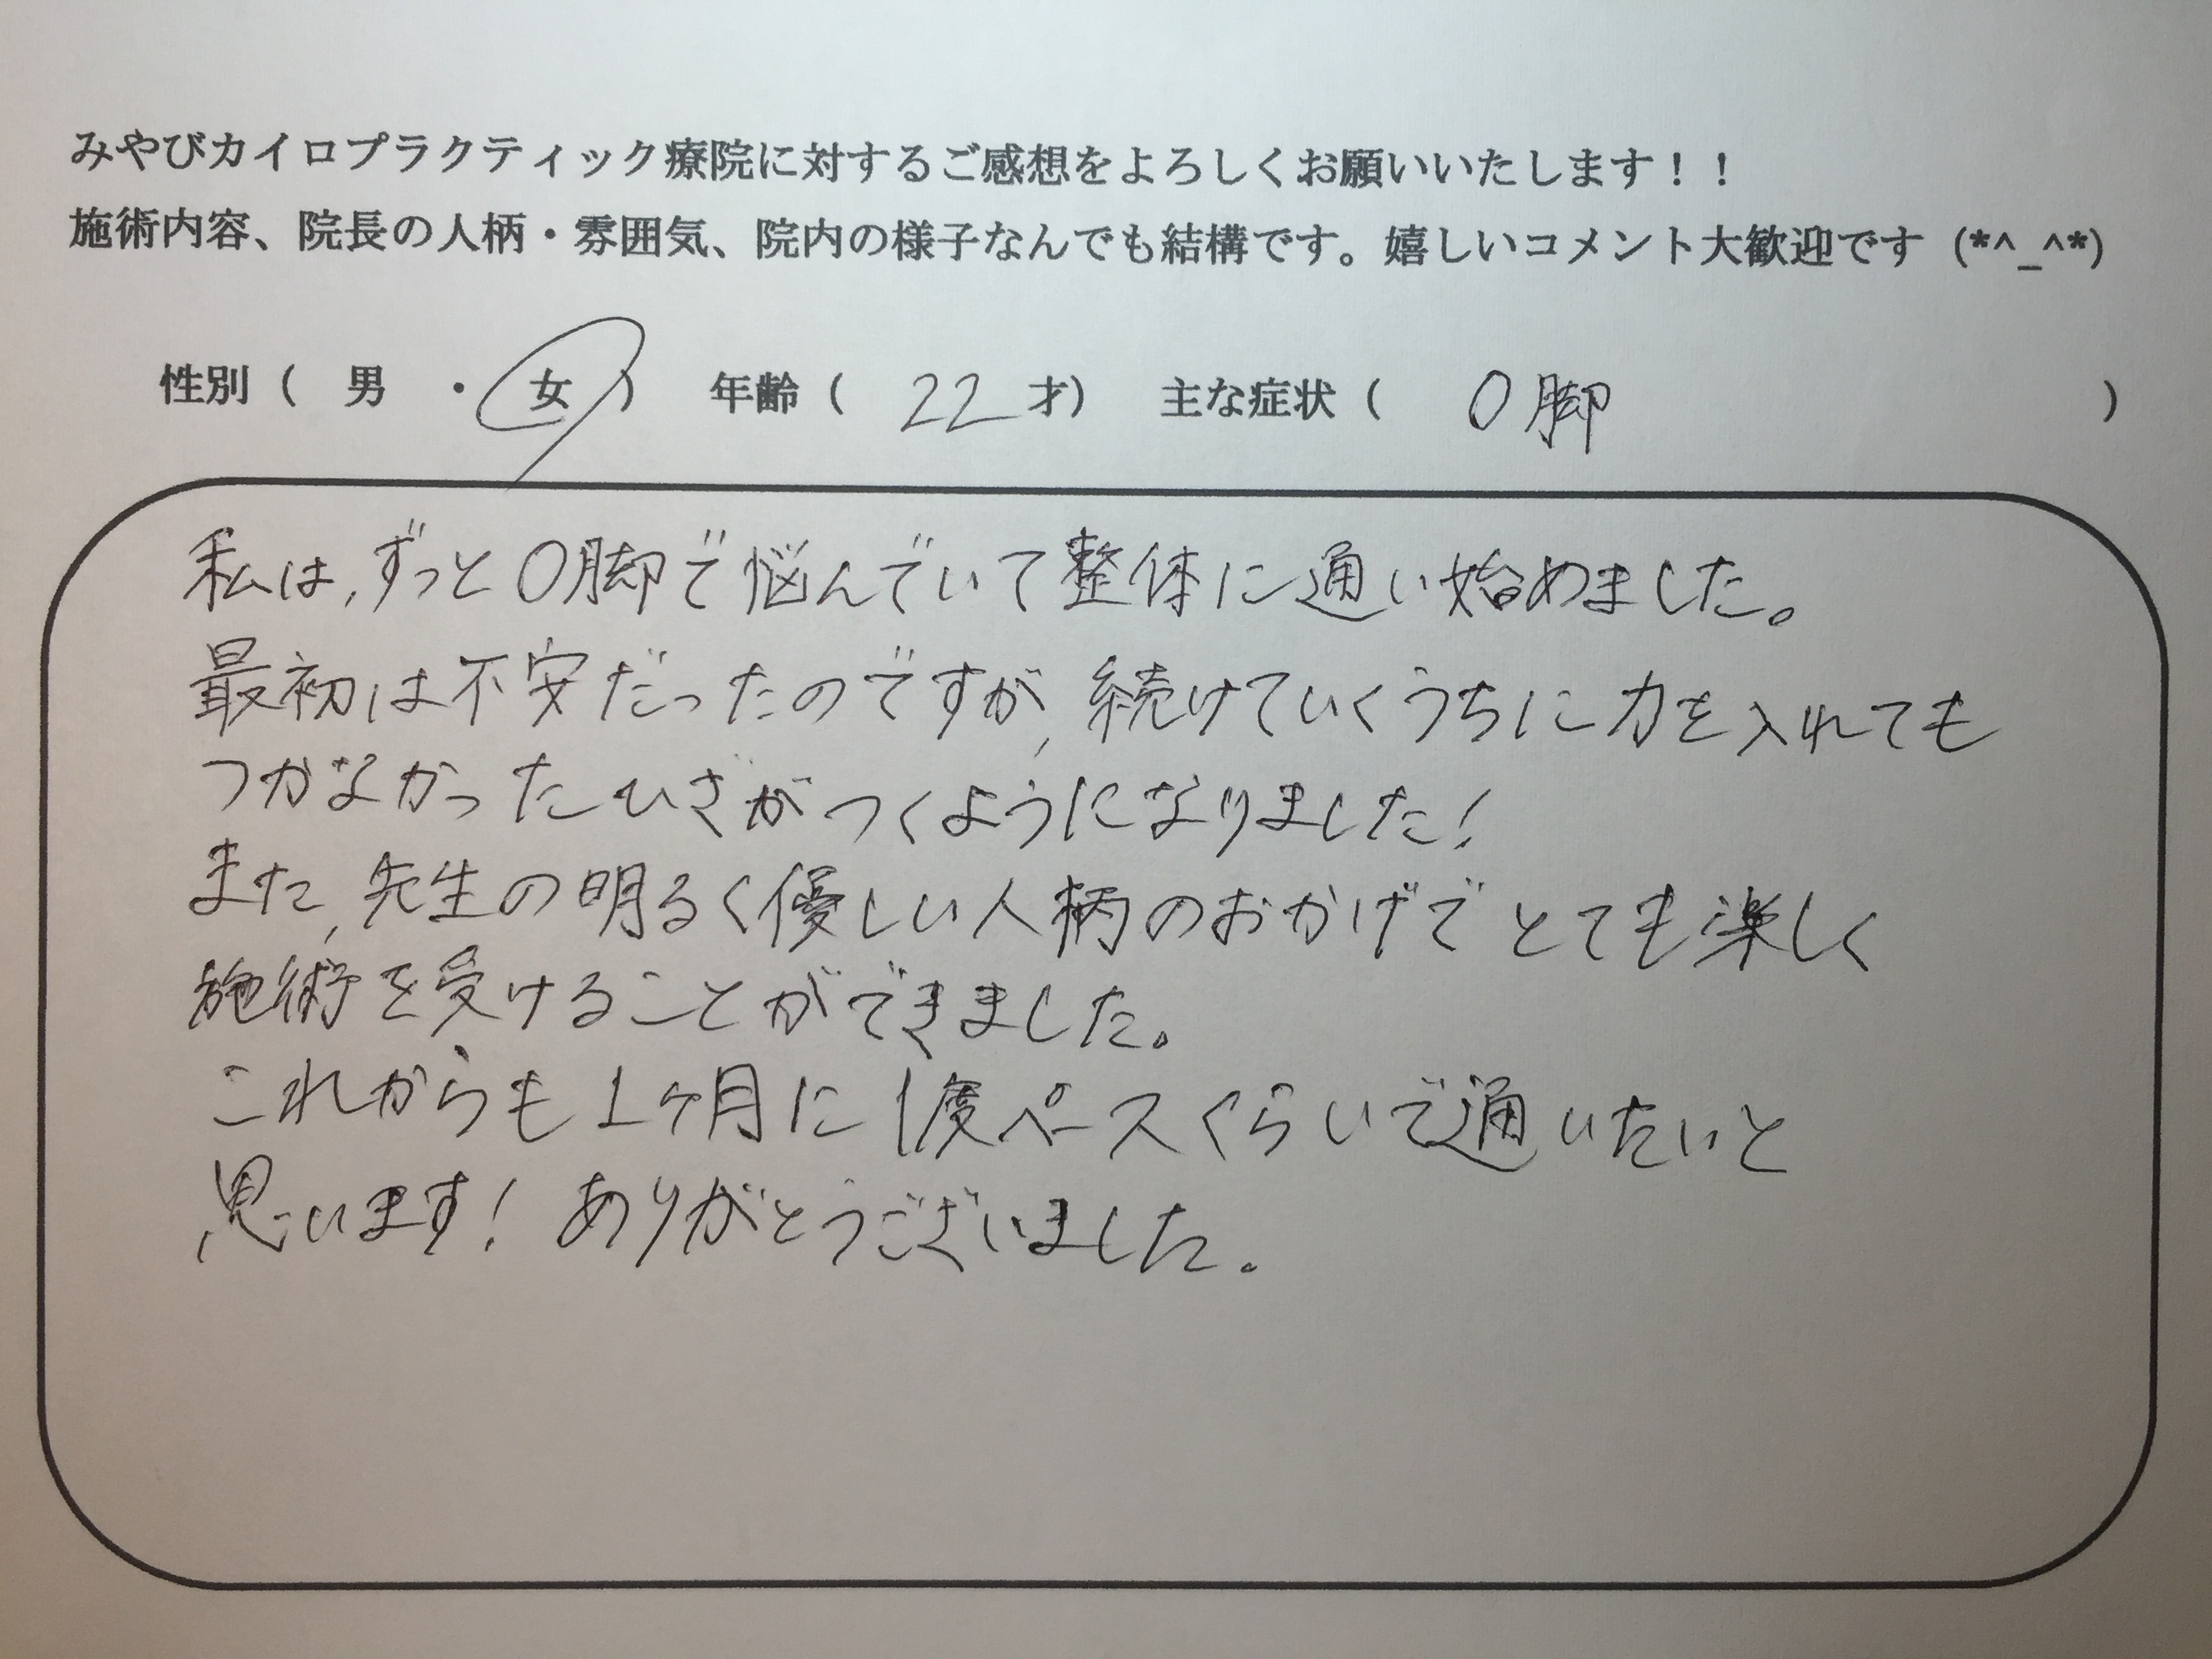 みやびカイロプラクティック療院に対するご感想をよろしくお願いいたします！！
施術内容、院長の人柄・雰囲気、院内の様子なんでも結構です。嬉しいコメント大歓迎です (*^_^*)
性別（ 男 ・ 女 ） 年齢（ 22 才） 主な症状（ O脚 ）
私は，ずっとO脚で悩んでいて整体に通い始めました。
最初は不安だったのですが，続けていくうちに力を入れても
つかなかったひざがつくようになりました！
また，先生の明るく優しい人柄のおかげでとても楽しく
施術を受けることができました。
これからも1ヶ月に1度ペースくらいで通いたいと
思います！ ありがとうございました。